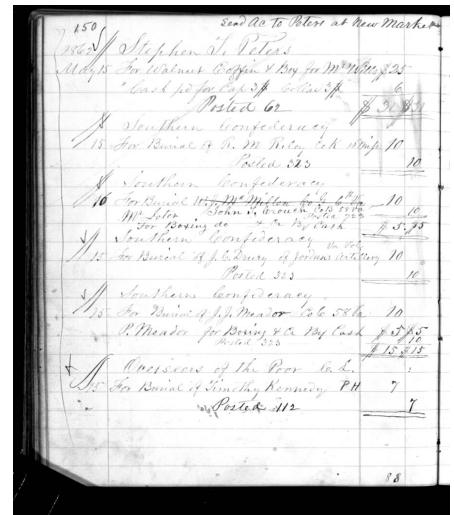 150
Send Ac to Peters at New Market
1862 Stephen T. Peters
May 15 For Walnut Coffin & Box for Mr $25
" Cash pd for Cap 3 $ Collar 3 $ 6
Posted 62 $ 31 $31
Southern Confederacy
15 For Burial of R. M. Riley Co K 10
Posted 323 10
Southern Confederacy
16 For Burial 10
John T. Co B
10
For Boxing do & Cr By Cash $ 5 $5
Southern Confederacy
15 For Burial of J. C. Drury of Jordans Artillery 10
Posted 323 10
Southern Confederacy
15 For Burial of J. J. Meador Co C 58 Va 10
P. Meador for Boxing & Cr By Cash $ 5 $5
Posted 323 10
$ 15 $15
Overseers of the Poor C. L.
15 For Burial of Timothy Kennedy PH 7
Posted 112 7
88